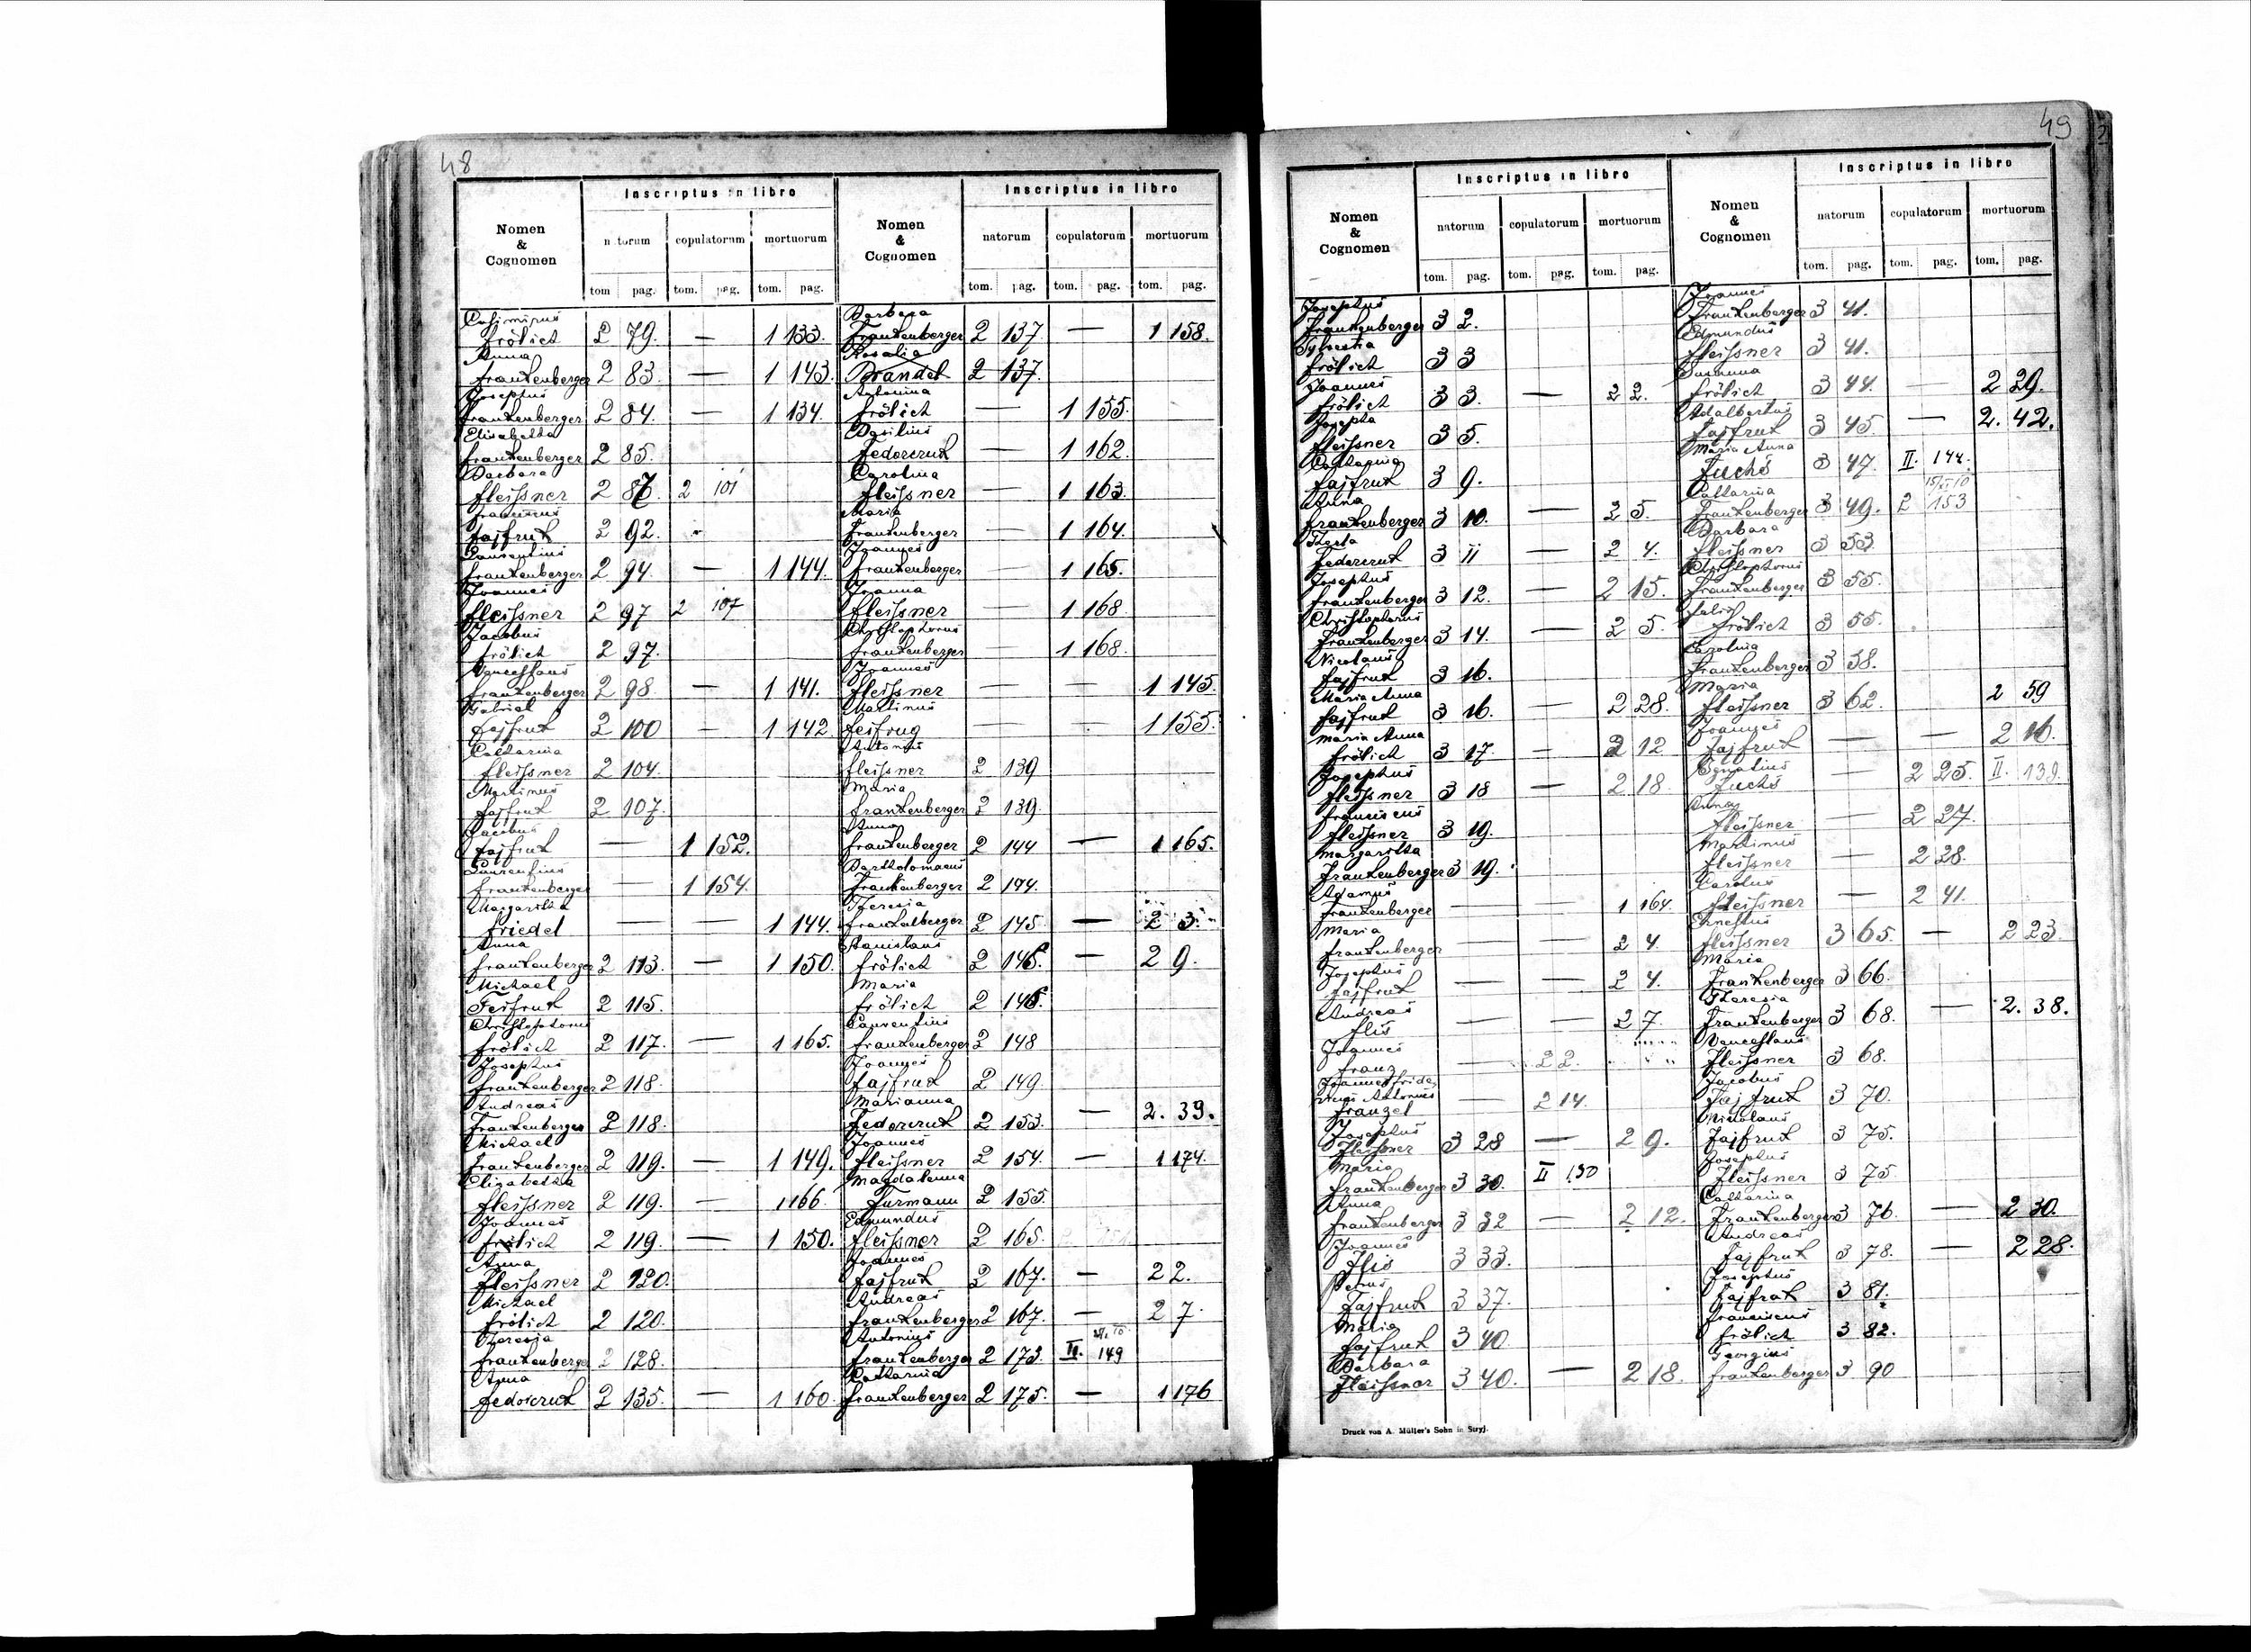 48
Inscriptus in libro
Inscriptus in libro
Nomen & Cognomen
natorum copulatorum mortuorum
Nomen & Cognomen
natorum copulatorum mortuorum
tom pag. tom. pag. tom. pag.
tom. pag. tom. pag. tom. pag.
Casimirus
Frölich 2 79. — 1 133.
Anna
Frankenberger 2 83. — 1 143.
Josephus
Frankenberger 2 84. — 1 134.
Elisabetha
Frankenberger 2 85.
Barbara
Fleissner 2 86. 2 101
Franciscus
Fajfruk 2 92.
Laurentius
Frankenberger 2 94. — 1 144.
Joannes
Fleissner 2 97 2 107
Jacobus
Frölich 2 97.
Venceslaus
Frankenberger 2 98 — 1 141.
Gabriel
Fajfruk 2 100 — 1 142
Catharina
Fleissner 2 104.
Martinus
Fajfruk 2 107.
Jacobus
Fajfruk — 1 152.
Laurentius
Frankenberger — 1 154.
Margaritha
Friedel — — 1 144.
Anna
Frankenberger 2 113. — 1 150.
Michael
Feifruk 2 115.
Christophorus
Frölich 2 117. — 1 165.
Josephus
Frankenberger 2 118.
Andreas
Frankenberger 2 118.
Michael
Frankenberger 2 119. — 1 149.
Elizabetha
Fleissner 2 119. — 1 166
Joannes
Frölich 2 119. — 1 150.
Anna
Fleissner 2 120.
Michael
Frölich 2 120.
Theresia
Frankenberger 2 128.
Anna
Fedorczuk 2 135. — 1 160.
Barbara
Frankenberger 2 137. — 1 158.
Rosalia
Brandel 2 137.
Antonina
Frölich — 1 155.
Basilius
Fedorczuk — 1 162.
Carolina
Fleissner — 1 163.
Maria
Frankenberger — 1 164.
Joannes
Frankenberger — 1 165.
Joanna
Fleissner — 1 168.
Christophorus
Frankenberger — 1 168.
Joannes
Fleissner — — 1 145.
Martinus
Feifrug — — 1 155.
Antonius
Fleissner 2 139
Maria
Frankenberger 2 139.
Anna
Frankenberger 2 144 — 1 165.
Bartholomaeus
Frankenberger 2 144.
Theresia
Frankalberger 2 145 — 2 3.
Stanislaus
Frölich 2 146. — 2 9.
Maria
Frölich 2 146.
Laurentius
Frankenberger 2 148
Joannes
Fajfruk 2 149.
Marianna
Fedorczuk 2 153. — 2. 39.
Joannes
Fleissner 2 154. — 1 174.
Magdalenna
Furmann 2 155.
Edmundus
Fleissner 2 165.
Joannes
Fajfruk 2 167. — 2 2.
Andreas
Frankenberger 2 167. — 2 7.
Antonius
Frankenberger 2 173. II. 149
Catharina
Frankenberger 2 175. — 1 176
49
Inscriptus in libro
Inscriptus in libro
Nomen & Cognomen
natorum copulatorum mortuorum
Nomen & Cognomen
natorum copulatorum mortuorum
tom. pag. tom. pag. tom. pag.
tom. pag. tom. pag. tom. pag.
Josephus
Frankenberger 3 2.
Sylvestra
Frölich 3 3
Joannes
Frölich 3 3. — 2 2.
Josepha
Fleissner 3 5.
Catharina
Fajfruk 3 9.
Anna
Frankenberger 3 10. — 2 5.
Thecla
Fedorczuk 3 11 — 2 4.
Josephus
Frankenberger 3 12. — 2 15.
Christophorus
Frankenberger 3 14. — 2 5.
Nicolaus
Fajfruk 3 16.
Maria Anna
Fajfruk 3 16. — 2 28.
Maria Anna
Frölich 3 17. — 2 12
Josephus
Fleissner 3 18 — 2 18.
Franciscus
Fleissner 3 19.
Margaritha
Frankenberger 3 19.
Adamus
Frankenberger — — 1 164.
Maria
Frankenberger — — 2 4.
Josephus
Fajfruk — — 2 4.
Andreas
Flis — — 2 7.
Joannes
Franz — 2 2.
Franzel — 2 14.
Josephus
Fleissner 3 28 — 2 9.
Maria
Frankenberger 3 30. II 130
Anna
Frankenberger 3 32 — 2 12.
Joannes
Flis 3 33.
Petrus
Fajfruk 3 37.
Maria
Fajfruk 3 40.
Barbara
Fleissner 3 40. — 2 18.
Joannes
Frankenberger 3 41.
Edmundus
Fleissner 3 41.
Susanna
Frölich 3 44. — 2 29.
Adalbertus
Fajfruk 3 45. — 2. 42.
Maria Anna
Fuchs 3 47. II. 144.
Catharina
Frankenberger 3 49. 2 153
Barbara
Fleissner 3 53
Christophorus
Frankenberger 3 55.
Felix
Frölich 3 55.
Carolina
Frankenberger 3 58.
Maria
Fleissner 3 62. 2 59
Joannes
Fajfruk — — 2 16.
Ignatius
Fuchs — 2 25. II. 139.
Anna
Fleissner — 2 27.
Martinus
Fleissner — 2 28.
Carolus
Fleissner — 2 41.
Ernestus
Fleissner 3 65. — 2 23.
Maria
Frankenberger 3 66.
Theresia
Frankenberger 3 68. — 2. 38.
Venceslaus
Fleissner 3 68.
Jacobus
Fajfruk 3 70.
Nicolaus
Fajfruk 3 75.
Josephus
Fleissner 3 75
Catharina
Frankenberger 3 76. — 2 30.
Andreas
Fajfruk 3 78. — 2 28.
Josephus
Fajfruk 3 81.
Franciscus
Frölich 3 82.
Georgius
Frankenberger 3 90
Druck von A. Müller's Sohn in Stryj.